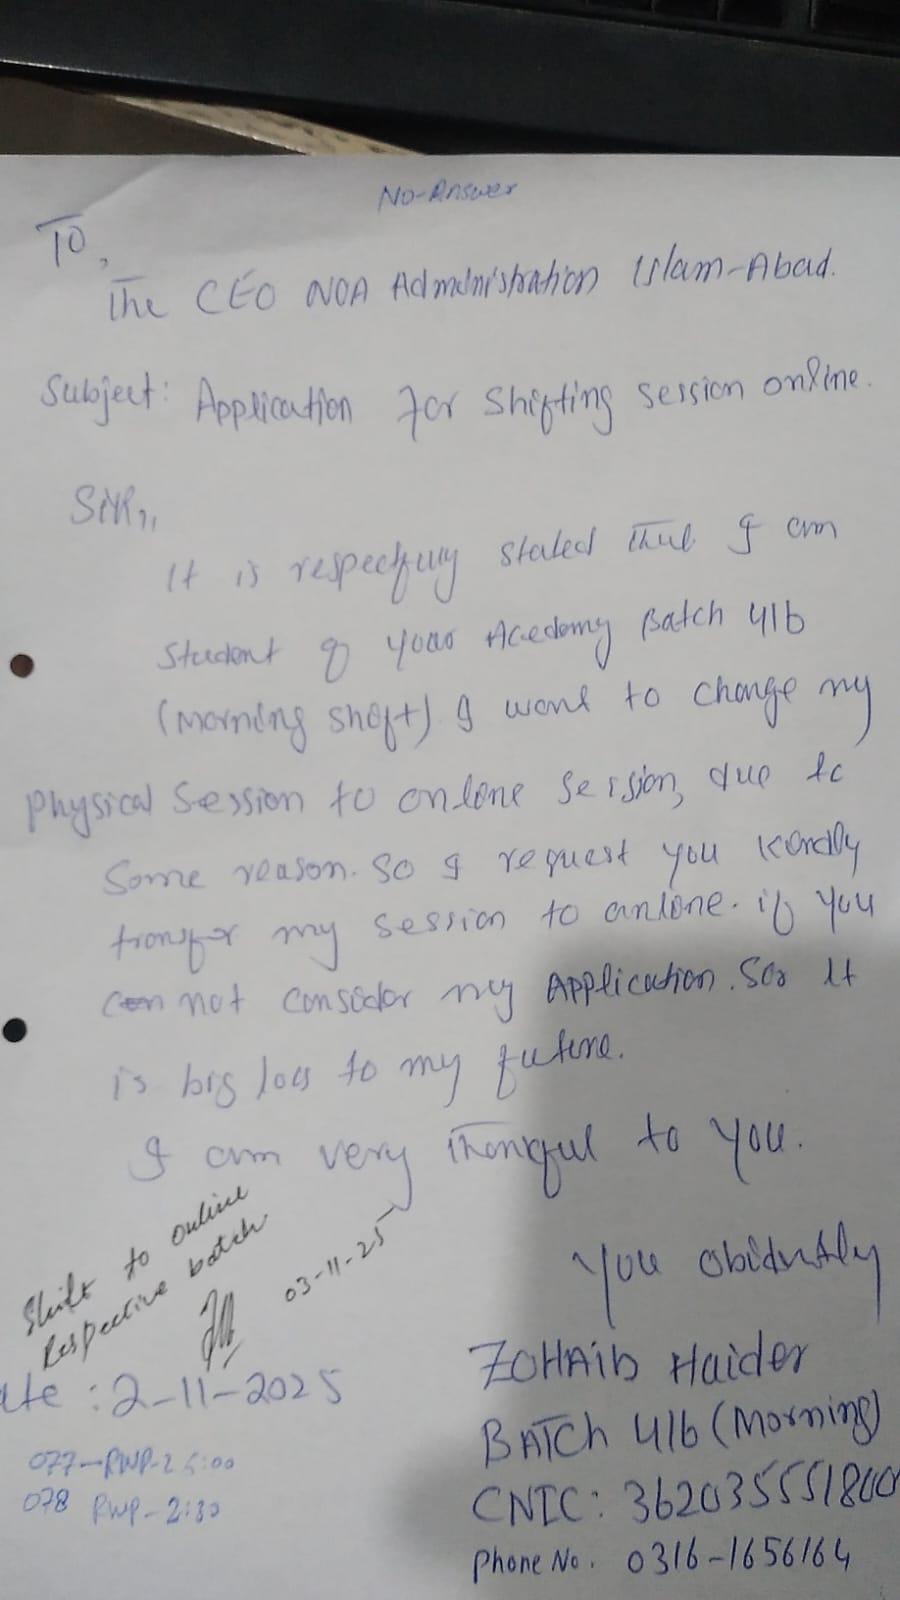 No-Answer
TO,
The CEO NOA Administration Islam-Abad.
Subject: Application For Shifting session online.
SIR,,
It is respectfuly stated that I am
Student of your Acedemy Batch 41b
(Morning Shift) I want to change my
Physical Session to online Session, due to
Some reason. So I request you kindly
transfer my session to online. if you
can not consider my Application. So it
is big loss to my future.
I am very thankful to you.
You obidently
Shift to online
Respective batch
03-11-25
ate : 2-11-2025
ZOHAib Haider
BATCH 41b (Morning)
077-RWP-2 5:00
078 RWP-2:30
CNIC: 362035551800
Phone No. 0316-1656164